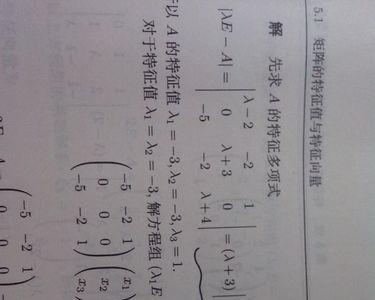 5.1 矩阵的特征值与特征向量
解 先求 A 的特征多项式
λ−2 −2 1
|λE − A| = 0 λ+3 0 = (λ+3)
−5 −2 λ+4
以 A 的特征值 λ₁ = −3, λ₂ = −3, λ₃ = 1.
对于特征值 λ₁ = λ₂ = −3, 解方程组 (λ₁E
−5 −2 1 x₁
0 0 0 x₂
−5 −2 1 x₃
−5 −2 1
0 0 0